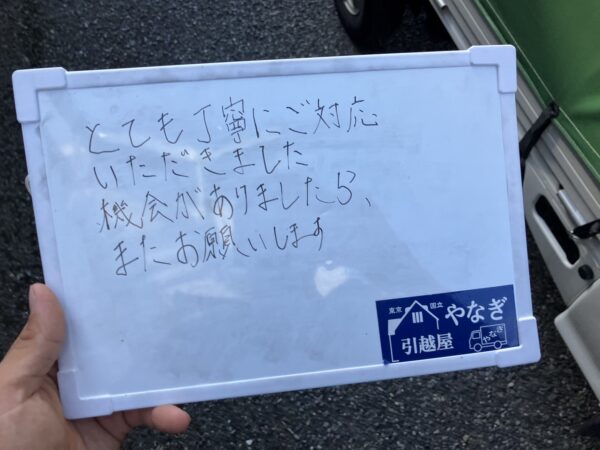 とても丁寧にご対応
いただきました
機会がありましたら、
またお願いします
東京 国立 やなぎ
引越屋 やなぎ